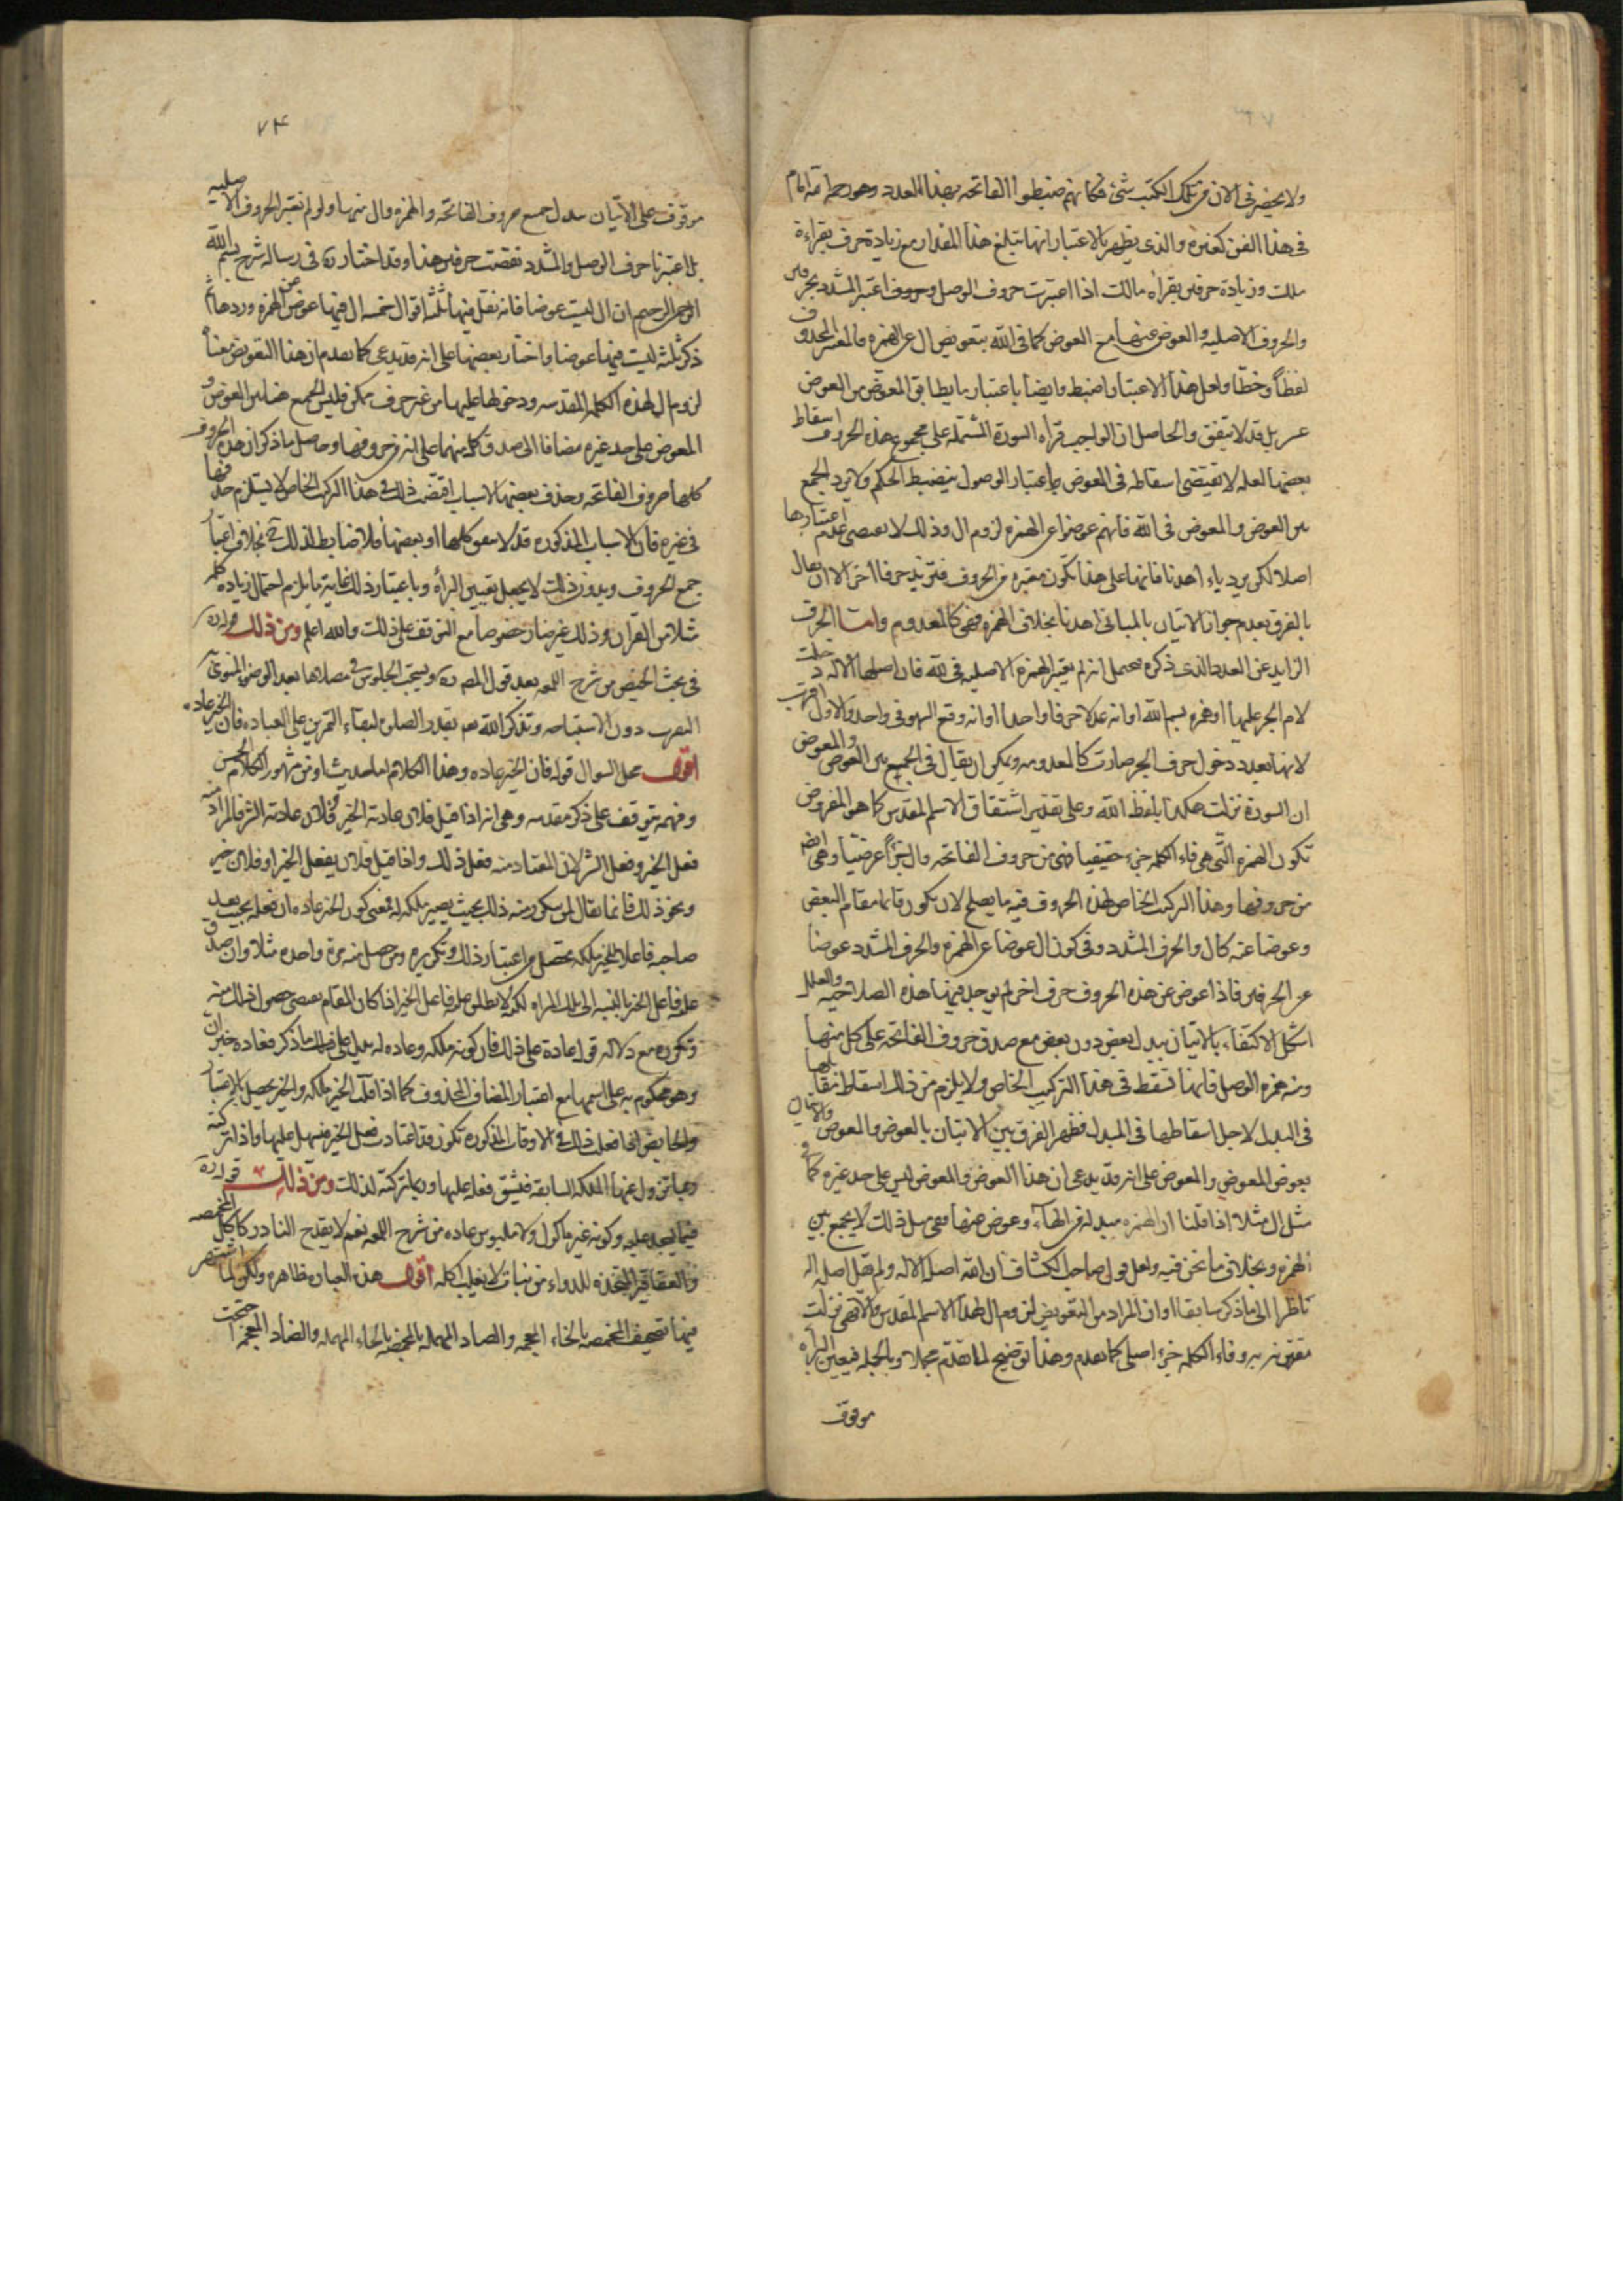 ولا يحضرنى الان من تلك الكتب شئ فكانهم ضبطوا الفاتحه بهذا العدد وهو رحمه الله امام
فى هذا الفن كغيره والذى يظهر بالاعتبار انها تبلغ هذا المقدار مع زيادة حرف بقراءة
ملك وزيادة حرفين بقراءه مالك اذا اعتبرت حروف الوصل وحروف اعتبر المشدد بحرفين
والحروف الاصليه والعوض عنها مع العوض كما فى الله بتعويض ال عن الهمزه فالمعتبر المحذوف
لفظاً وخطاً ولعل هذا الاعتبار اضبط وايضا باعتبار ما يطابق المعوض من العوض
عسر بل قد لا يتفق والحاصل ان الواجب قرأه السورة المشتمله على مجموع هذه الحروف اسقاط
بعضها لعله لا يقتضى اسقاطه فى العوض باعتبار الوصول ينضبط الحكم ولا يرد الجمع
بين العوض والمعوض فى الله فانهم عوضوا عن الهمزه لزوم ال وذلك لا يقتضى عدم اعتبارها
اصلا لكن يرد ياء اهدنا فانها على هذا تكون معتبره من الحروف فتزيد حرفا اخر الا ان يقال
بالفرق بعدم جواز الاتيان بالمبانى اهدنا بخلاف الهمزه فهى كالمعدوم واما الحرف
الزايد عن العدد الذى ذكره فيحتمل انه لم يعتبر الهمزه الاصليه فى لله فان اصلها الاله دخلت
لام الجر عليها او همزه بسم الله او انه عد لا حرفا واحدا او انه وقع السهو فى واحد والاول اقرب
لانها بعد دخول حرف الجر صارت كالمعدومه ويمكن ان يقال فى الجميع بين العوض والمعوض
ان السورة نزلت هكذا بلفظ الله وعلى تقدير اشتقاق الاسم المقدس كما هو المفروض
تكون الهمزه التى هى فاء الكلمه جزء حقيقيا فهى من حروف الفاتحه وال جزأ عرضيا وهى ايضا
من حروفها وهذا التركيب الخاص لهذه الحروف فيه ما يصلح لان يكون قائما مقام البعض
وعوضا عنه كال والحرف المشدد وفى كون ال عوضا عن الهمزه والحرف المشدد عوضا
عن الحرفين فاذا عوض عن هذه الحروف حرف اخر لم يوجد فيها هذه الصلاحيه والعلل
اشكل الاكتفاء بالاتيان ببدل بعض دون بعض مع صدق حروف الفاتحه على كل منها
ومنه همزه الوصل فانها تسقط فى هذا التركيب الخاص ولا يلزم من ذلك اسقاط مقابلها
فى البدل لاجل اسقاطها فى المبدل فظهر الفرق بين الاتيان بالعوض والمعوض والاتيان
بعوض المعوض والمعوض على انه قد يدعى ان هذا العوض والمعوض ليس على حد غيره كما فى
مثل ال مثلا اذا قلنا ان الهمزه مبدله من الهاء وعوض عنها ففى مثل ذلك لا يجمع بين
الهمزه وبخلاف ما نحن فيه ولعل قول صاحب الكشاف ان الله اصله الاله ولم يقل اصله اله
ناظرا الى ما ذكر سابقا او ان المراد من التعويض لزوم ال لهذا الاسم المقدس والا فهى نزلت
مقترنه به وفاء الكلمه جزء اصلى كما تقدم وهذا توضيح لما تقدم مجملا وبالجمله فيعين البرأه
موقوف
٧٤
موقوف على الاتيان ببدل جميع حروف الفاتحه والهمزه وال منها ولو لم نعتبر الحروف الاصليه
بل اعتبرنا حرف الوصل والمشدد نقصت حرفين هذا وقد اختار ره فى رساله شرح بسم الله
الرحمن الرحيم ان ال ليست عوضا فانه نقل فيها ثلثه اقوال خمسه ال فيها عوض عن الهمزه وردها ثم
ذكر ثلثه ليست فيها عوضا واختار بعضها على انه قد يدعى كما تقدم ان هذا التعويض معناه
لزوم ال لهذه الكلمه المقدسه ودخولها عليها من غير حرف يمكن فليس الجمع هنا بين العوض و
المعوض على حد غيره مضافا الى صدق كل منهما على انه من حروفها وحاصل ما ذكر ان هذه الحروف
كلها حروف الفاتحه وحذف بعضها لاسباب اقتضت ذلك فى هذا التركيب الخاص لا يستلزم حذفها
فى غيره فان الاسباب المذكوره قد لا تتفق كلها او بعضها فلا ضابط لذلك ح بخلاف اعتبار
جميع الحروف وبدون ذلك لا يحصل تعيين البرأه وباعتبار ذلك غايته ما يلزم احتمال زياده كلمه
مثلا من القران وذلك غير ضار خصوصا مع التوقف على ذلك والله اعلم ومن ذلك قوله ره
فى بحث الحيض من شرح اللمعه بعد قول المص ره ويستحب الجلوس فى مصلاها بعد الوضوء المنوى
التقرب دون الاستباحه وتذكر الله تعم بقدر الصلوه لبقاء التمرين على العباده فان الخير عاده
اقول محل السوال قوله فان الخير عاده وهذا الكلام اما حديث او من مشهور الكلام الحسن
وفهمه يتوقف على ذكر مقدمه وهى انه اذا قيل فلان عادته الخير وفلان عادته الشر فالمراد منه
فعل الخير وفعل الشر لانه المعتاد منه فعل ذلك واذا قيل فلان يفعل الخير او فلان خير
ونحو ذلك فانما يقال لمن يتكرر منه ذلك بحيث يصير ملكه له فمعنى كون الخير عاده ان فعله بحيث يعد
صاحبه فاعلا للخير ملكه تحصل من اعتبار ذلك وتكريره ومن حصل منه مرة واحده مثلا وان صدق
عليه فاعل الخير بالنسبه الى تلك المراه لكن لا يطلق عليه فاعل الخير اذا كان المقام يقتضى حصول ذلك منه
وتكرره مع دلاله قوله عادة على ذلك فان كونه ملكه وعاده له يدل على ذلك ما ذكر فعاده خبر ان
وهو محكوم به على اسمها مع اعتبار المضاف المحذوف كما اذا قلت الخير ملكه والخير يحصل بالاعتبار
والحايض اذا فعلت ذلك فى الاوقات المذكوره تكون قد اعتادت فعل الخير فيسهل عليها واذا تركته
ربما تزول عنها الملكه السابقه فيشق فعله عليها وربما تركته لذلك ومن ذلك قوله ره
فيما يسجد عليه وكونه غير ماكول ولا ملبوس عاده من شرح اللمعه نعم لا يقدح النادر كاكل المخمصه
والعقاقير المتخذه للدواء من نبات لا يغلب اكله اقول هذه العباره ظاهره ولكن لما اشتهر
فيها تصحيف المخمصه بالخاء المعجمه والصاد المهمله بالمحمضه بالحاء المهمله والضاد المعجمه احتجت